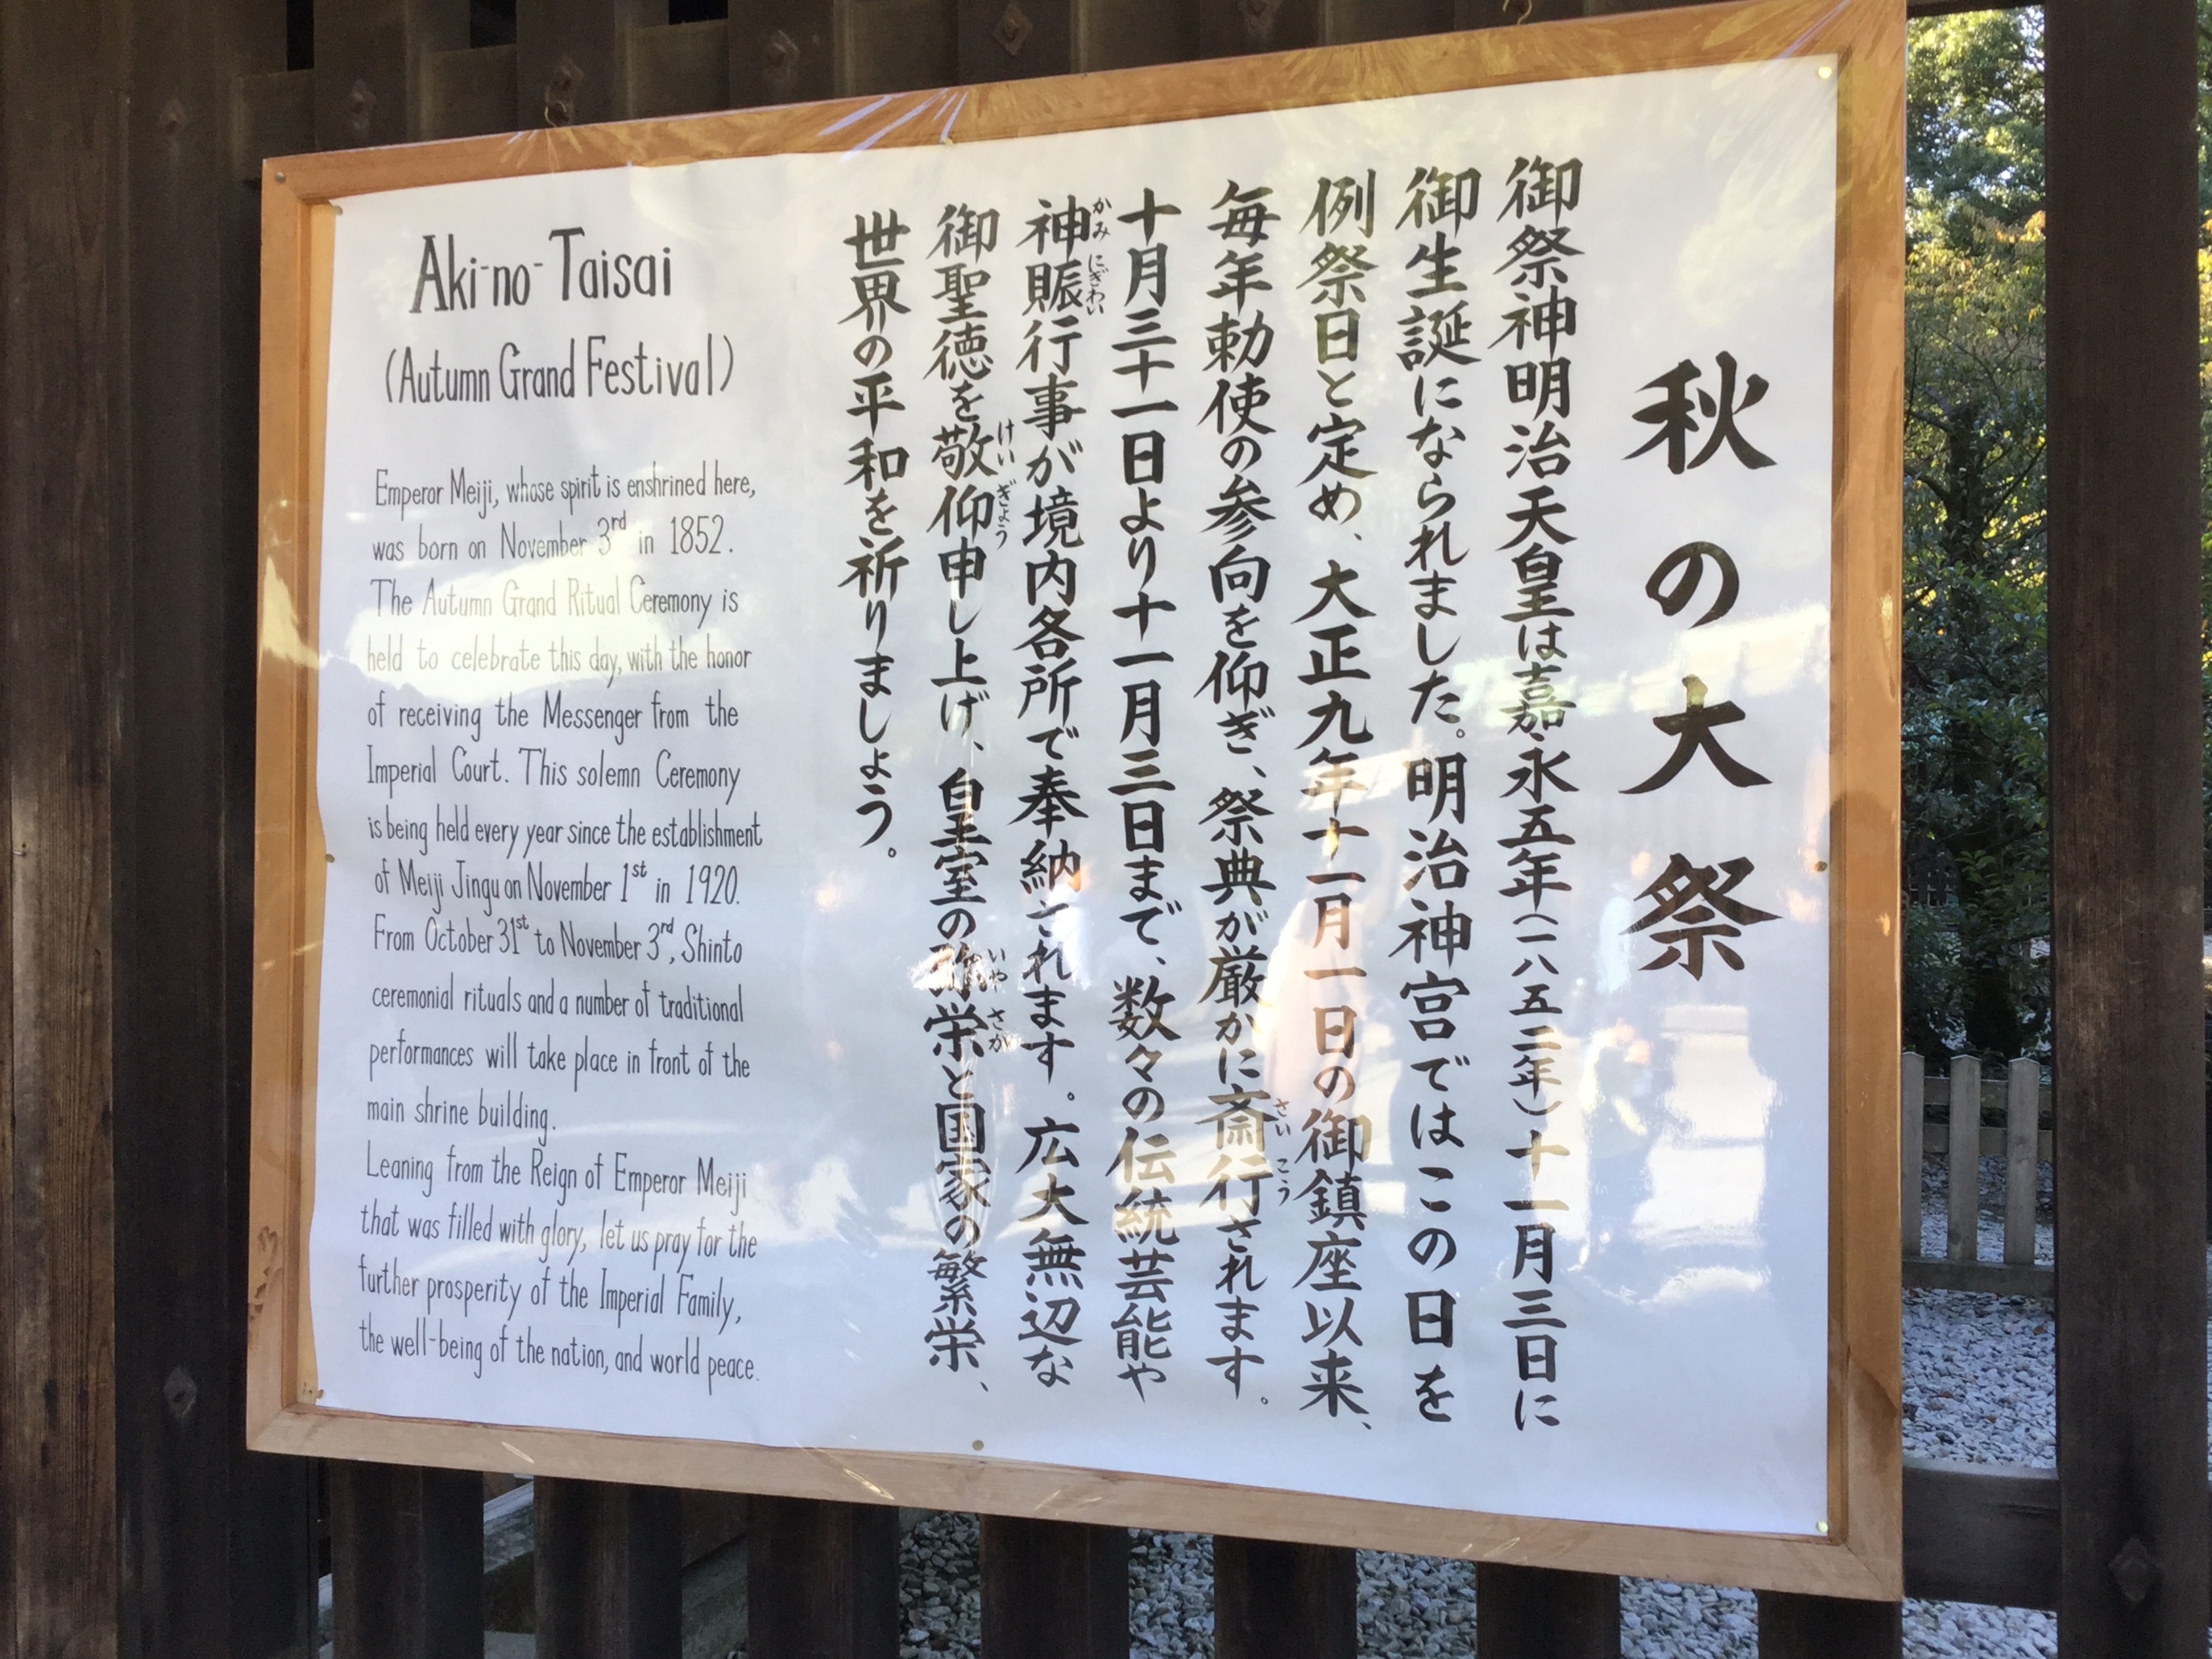 秋の大祭
御祭神明治天皇は嘉永五年(一八五二年)十一月三日に
御生誕になられました。明治神宮ではこの日を
例祭日と定め、大正九年十一月一日の御鎮座以来、
毎年勅使の参向を仰ぎ、祭典が厳かに斎行されます。
さいこう
十月三十一日より十一月三日まで、数々の伝統芸能や
神賑行事が境内各所で奉納されます。広大無辺な
かみにぎわい
御聖徳を敬仰申し上げ、皇室の弥栄と国家の繁栄、
けいぎょう いやさか
世界の平和を祈りましょう。
Aki-no-Taisai
(Autumn Grand Festival)
Emperor Meiji, whose spirit is enshrined here,
was born on November 3rd in 1852.
The Autumn Grand Ritual Ceremony is
held to celebrate this day, with the honor
of receiving the Messenger from the
Imperial Court. This solemn Ceremony
is being held every year since the establishment
of Meiji Jingu on November 1st in 1920.
From October 31st to November 3rd, Shinto
ceremonial rituals and a number of traditional
performances will take place in front of the
main shrine building.
Leaning from the Reign of Emperor Meiji
that was filled with glory, let us pray for the
further prosperity of the Imperial Family,
the well-being of the nation, and world peace.